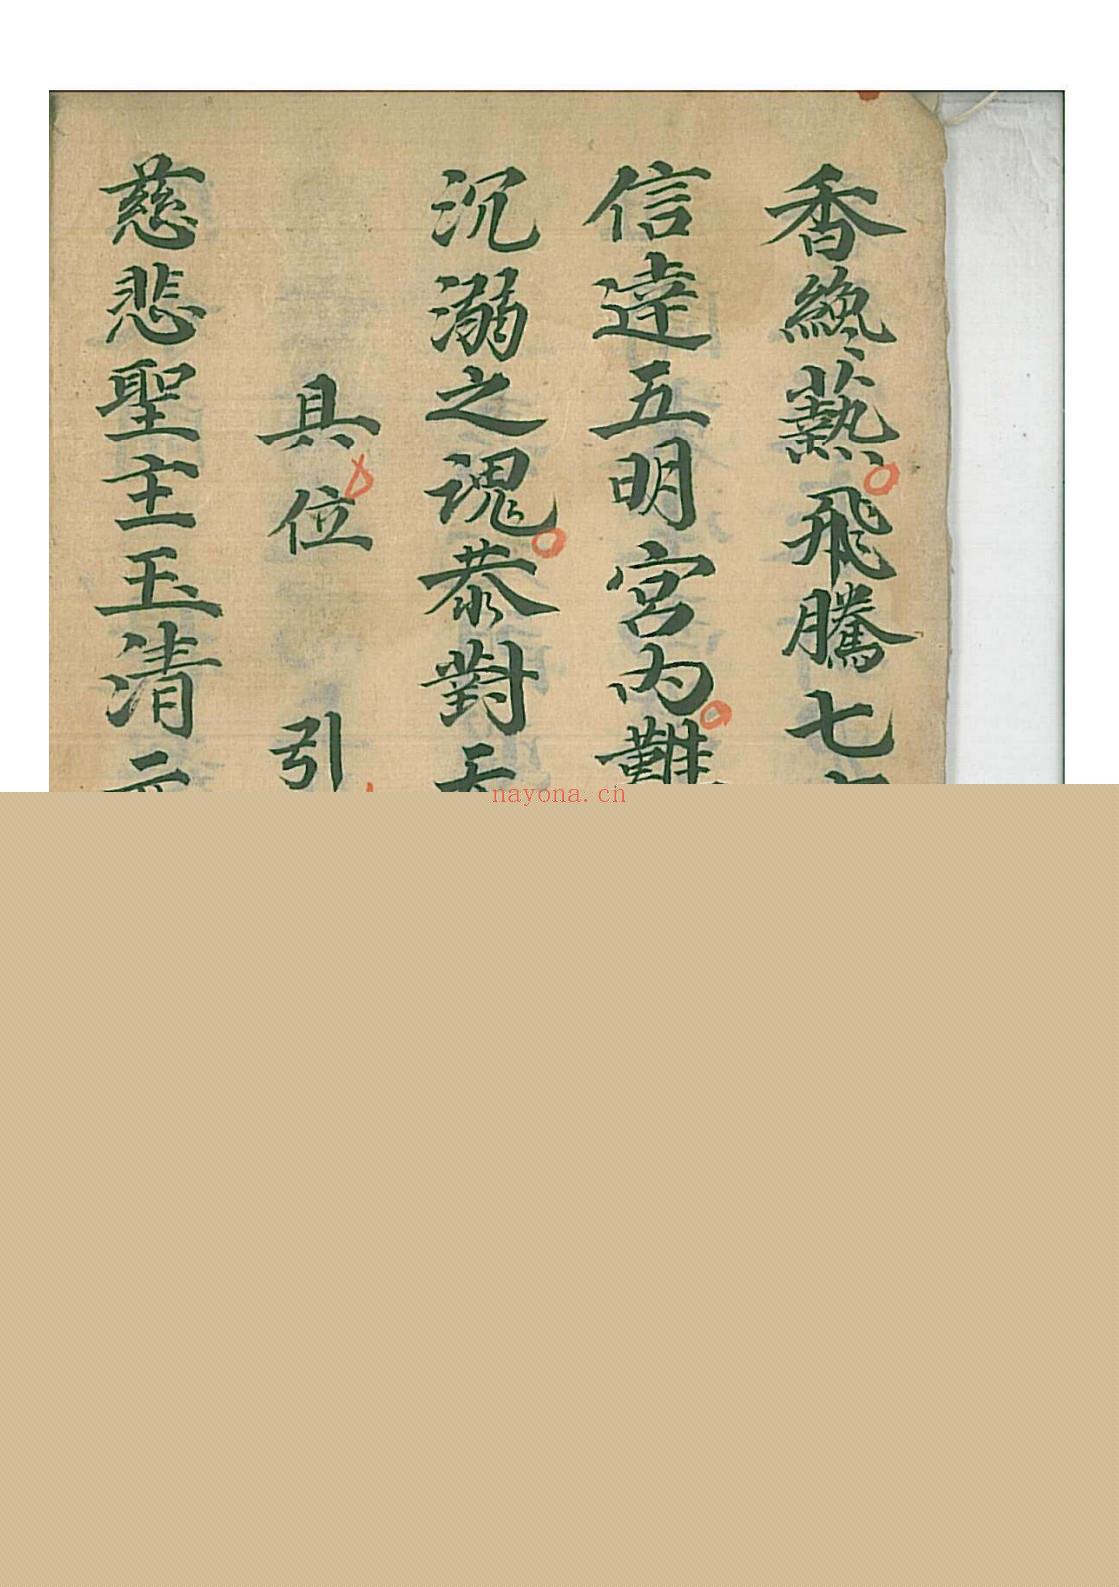 香纔爇飛騰七
信達五明宮內難
沉溺之魂恭對天
具位 引
慈悲聖主玉清
nayona.cn